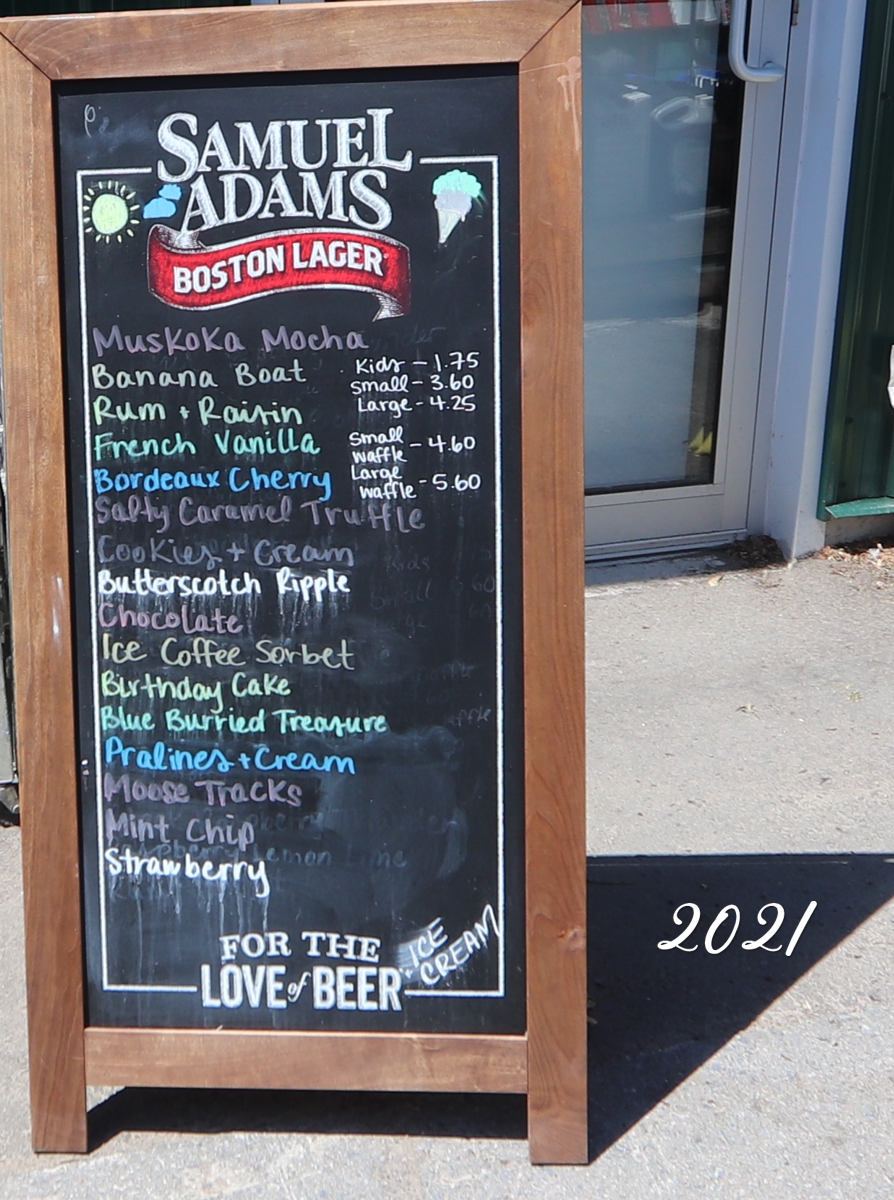 SAMUEL
ADAMS
BOSTON LAGER
Muskoka Mocha
Banana Boat
Rum + Raisin
French Vanilla
Bordeaux Cherry
Salty Caramel Truffle
Cookies + Cream
Butterscotch Ripple
Chocolate
Ice Coffee Sorbet
Birthday Cake
Blue Burried Treasure
Pralines + Cream
Moose Tracks
Mint Chip
Strawberry
Kids - 1.75
Small - 3.60
Large - 4.25
Small waffle - 4.60
Large waffle - 5.60
Lemon Lime
FOR THE
LOVE of BEER
+ ICE
CREAM
2021